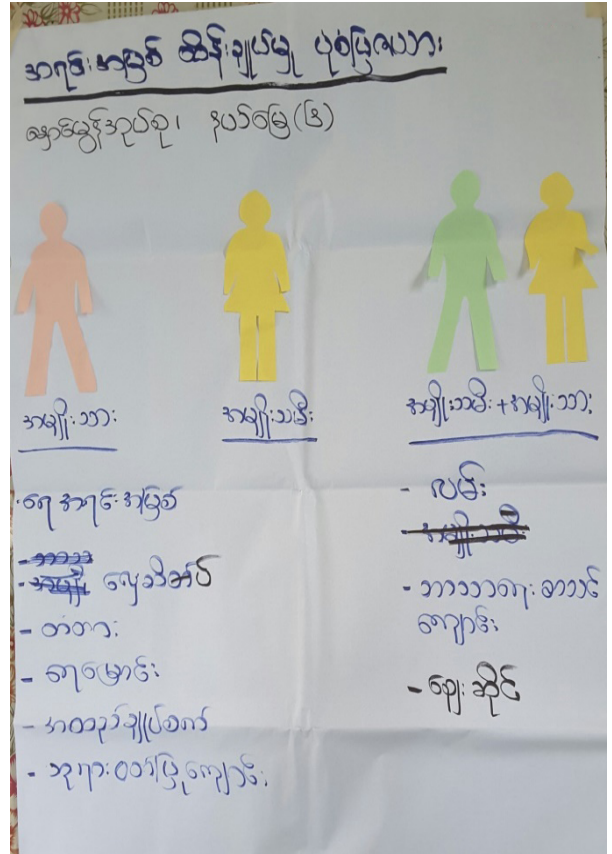 အရင်းအမြစ် ထိန်းချုပ်မှု ပုံစံပြဇယား
နယ်မြေ(၆)
အမျိုးသား
အမျိုးသမီး
အမျိုးသမီး + အမျိုးသား
·ရေ အရင်းအမြစ်
- လှေဆိပ်
- တံတား
- ရေမြောင်း
- အထည်ချုပ်စက်
- ဘုရားဝတ်ပြုကျောင်း
- လမ်း
- အမျိုးသမီး
- ဘာသာရေး စာသင်
ကျောင်း
- ဈေးဆိုင်